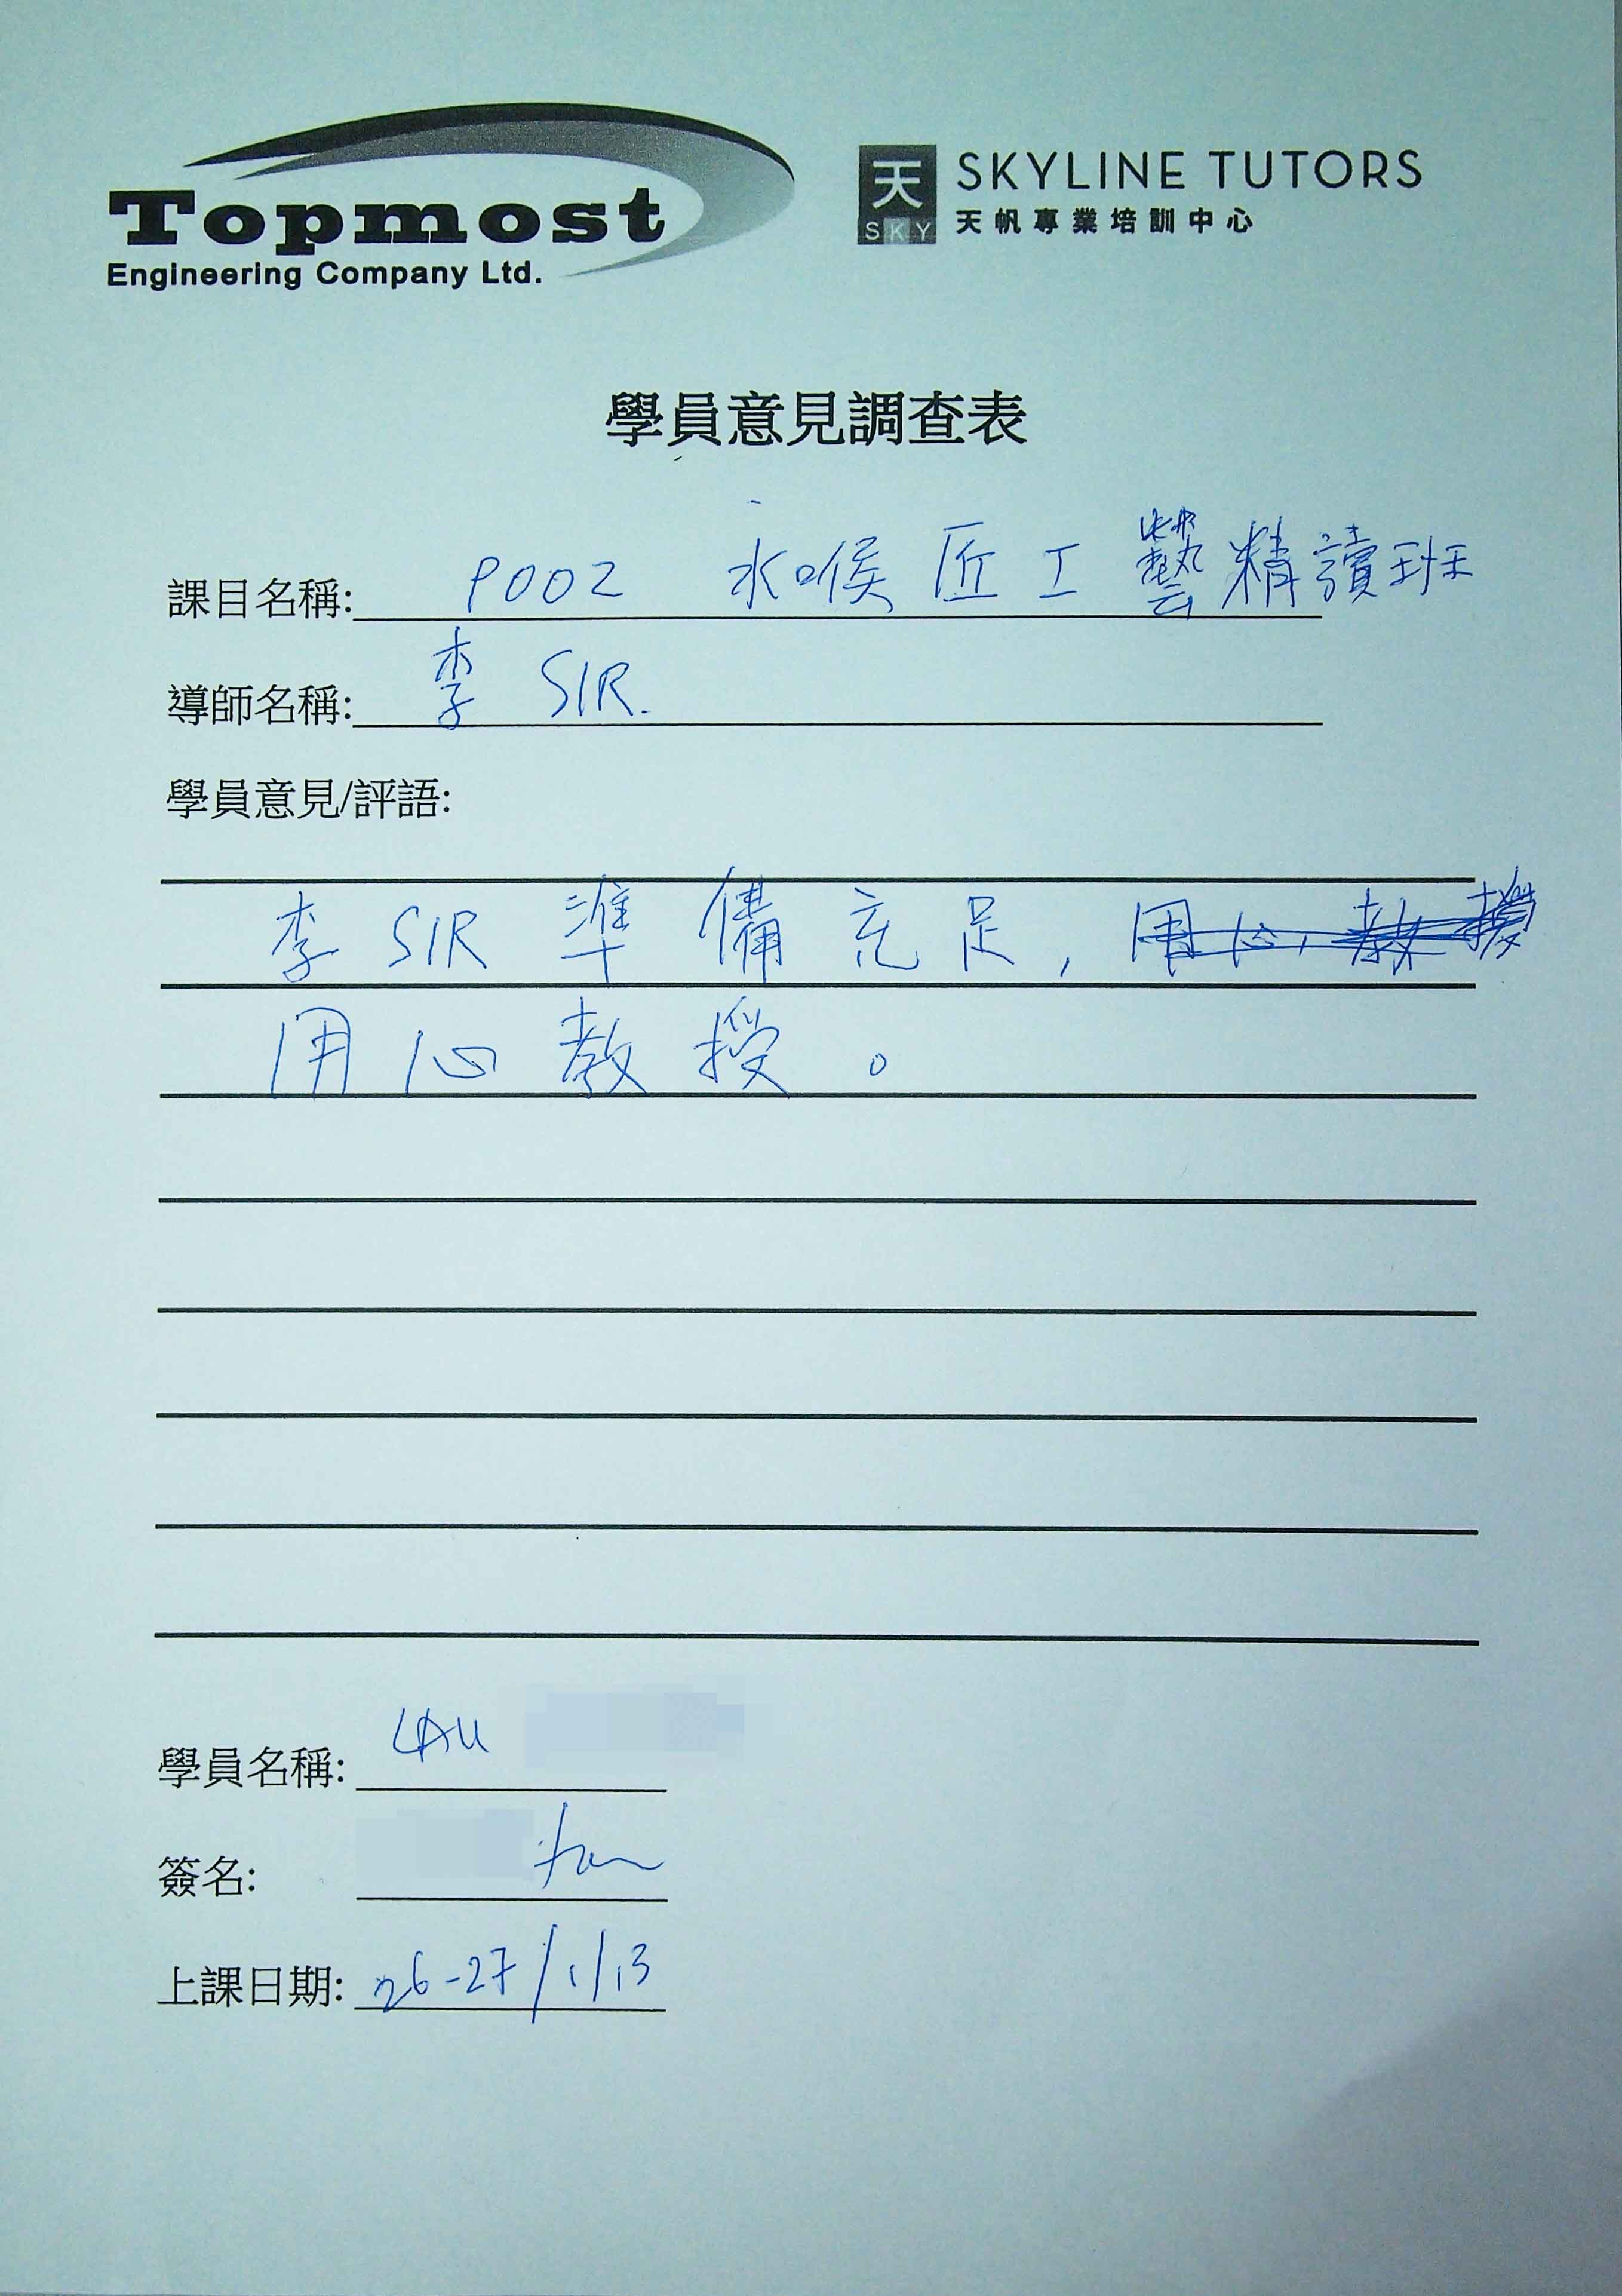 Topmost
Engineering Company Ltd.
天 SKYLINE TUTORS
SKY 天帆專業培訓中心
學員意見調查表
課目名稱: P002 水喉匠工藝精讀班
導師名稱: 李 SIR.
學員意見/評語:
李 SIR 準備充足, 用心教授
用心教授。
學員名稱: LAU
簽名:
上課日期: 26-27/1/13